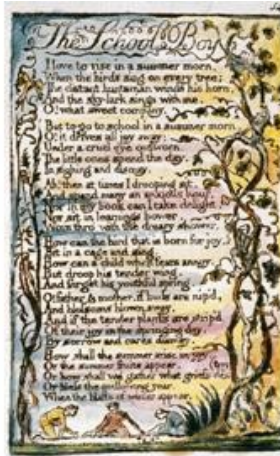 The School Boy
I love to rise in a summer morn,
When the birds sing on every tree;
The distant huntsman winds his horn,
And the sky-lark sings with me.
O! what sweet company.
But to go to school in a summer morn
O! it drives all joy away:
Under a cruel eye outworn,
The little ones spend the day,
In sighing and dismay.
Ah! then at times I drooping sit,
And spend many an anxious hour,
Nor in my book can I take delight,
Nor sit in learnings bower,
Worn thro' with the dreary shower.
How can the bird that is born for joy,
Sit in a cage and sing.
How can a child when fears annoy,
But droop his tender wing,
And forget his youthful spring.
O! father & mother, if buds are nip'd,
And blossoms blown away,
And if the tender plants are strip'd
Of their joy in the springing day,
By sorrow and cares dismay,
How shall the summer arise in joy
Or the summer fruits appear,
Or how shall we gather what griefs destroy
Or bless the mellowing year,
When the blasts of winter appear.